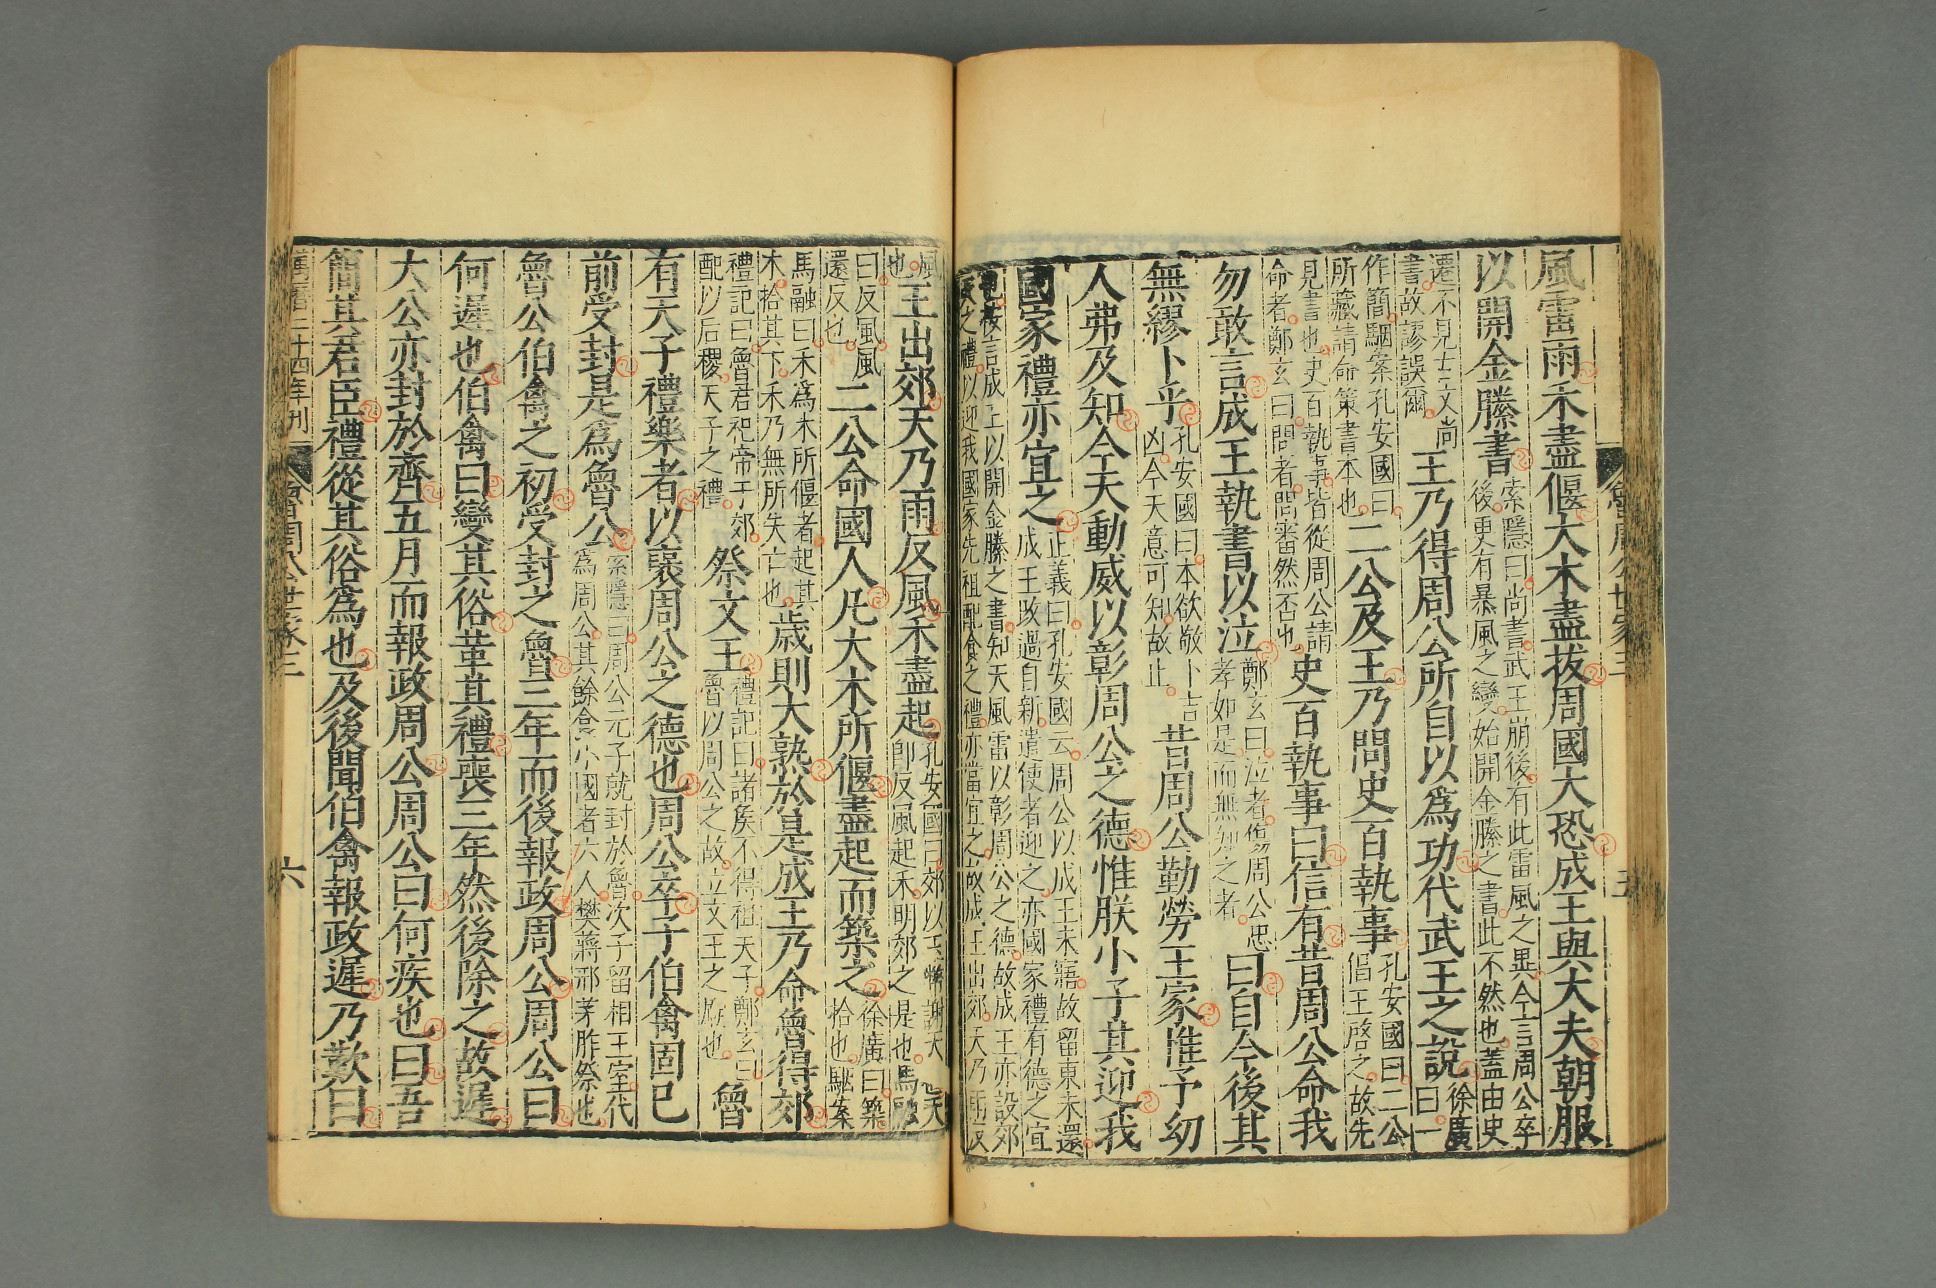 魯周公世家三 五
風雷雨禾盡偃大木盡拔周國大恐成王與大夫朝服
以開金縢書索隱曰尚書武王崩後有此雷風之異今言周公卒後更有暴風之變始開金縢之書此不然也蓋由史
遷不見古文尚書故謬誤爾王乃得周公所自以爲功代武王之說徐廣曰一
作簡駰案孔安國曰所藏請命策書本也二公及王乃問史百執事孔安國曰二公倡王啓之故先
見書也史百執事皆從周公請命者鄭玄曰問者問審然否也史百執事曰信有昔周公命我
勿敢言成王執書以泣鄭玄曰泣者傷周公忠孝如是而無知之者曰自今後其
無繆卜乎孔安國曰本欲敬卜吉凶今天意可知故止昔周公勤勞王家惟予幼
人弗及知今天動威以彰周公之德惟朕小子其迎我
國家禮亦宜之正義曰孔安國云周公以成王未寤故留東未還成王改過自新遣使者迎之亦國家禮有德之宜
也按言成王以開金縢之書知天風雷以彰周公之德故成王亦設郊天之禮以迎我國家先祖配食之禮亦當宜之故成王出郊天乃雨反
風也王出郊天乃雨反風禾盡起孔安國曰郊以玉幣謝天也天即反風起禾明郊之是也馬融
曰反風風還反也二公命國人凡大木所偃盡起而築之徐廣曰築拾也駰案
馬融曰禾爲木所偃者起其木拾其下禾乃無所失亡也歲則大熟於是成王乃命魯得郊
禮記曰魯君祀帝于郊配以后稷天子之禮祭文王禮記曰諸侯不得祖天子鄭玄曰魯以周公之故立文王之廟也魯
有天子禮樂者以襃周公之德也周公卒子伯禽固已
前受封是爲魯公索隱曰周公元子就封於魯次子留相王室代爲周公其餘食小國者六人樊蔣邢茅胙祭也
魯公伯禽之初受封之魯三年而後報政周公周公曰
何遲也伯禽曰變其俗革其禮喪三年然後除之故遲
太公亦封於齊五月而報政周公周公曰何疾也曰吾
簡其君臣禮從其俗爲也及後聞伯禽報政遲乃歎曰
萬曆二十四年刊 魯周公世家三 六